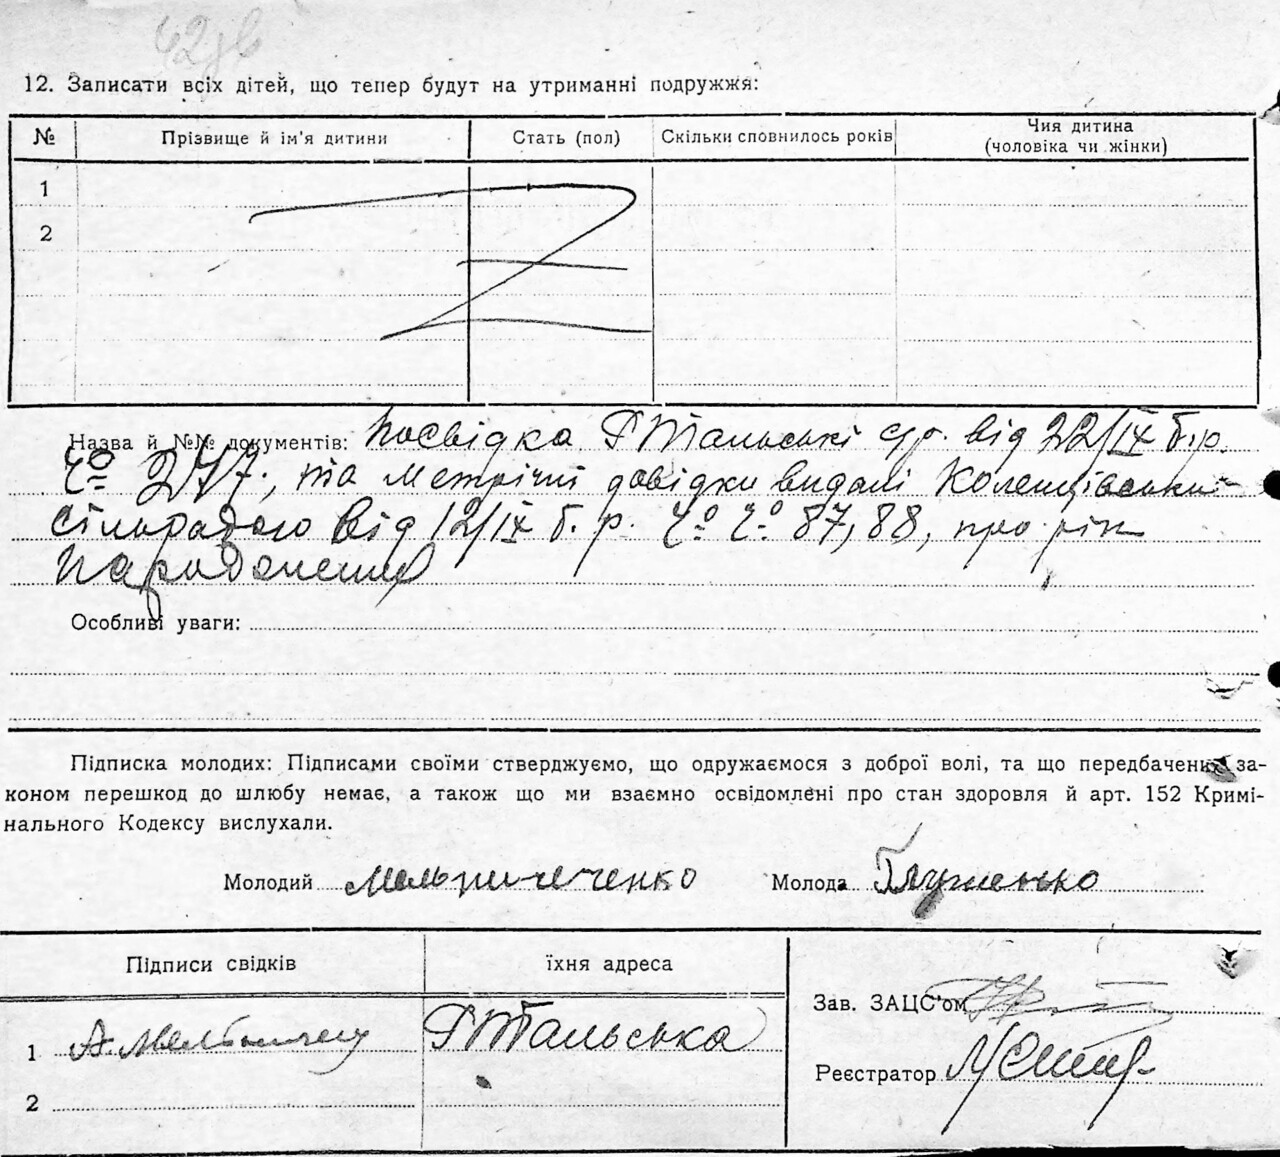 12. Записати всіх дітей, що тепер будут на утриманні подружжя:
№ Прізвище й ім'я дитини Стать (пол) Скільки сповнилось років Чия дитина (чоловіка чи жінки)
1
2
Назва й №№ документів: Посвідка від 22/IX б.р.
277, та метричні довідки видані
сільрадою від 12/IX б. р. 87, 88, про рік
народження
Особливі уваги:
Підписка молодих: Підписами своїми стверджуємо, що одружаємося з доброї волі, та що передбачених за-
коном перешкод до шлюбу немає, а також що ми взаємно освідомлені про стан здоровля й арт. 152 Кримі-
нального Кодексу вислухали.
Молодий Молода
Підписи свідків їхня адреса
Зав. ЗАЦС'ом
1
Реєстратор
2